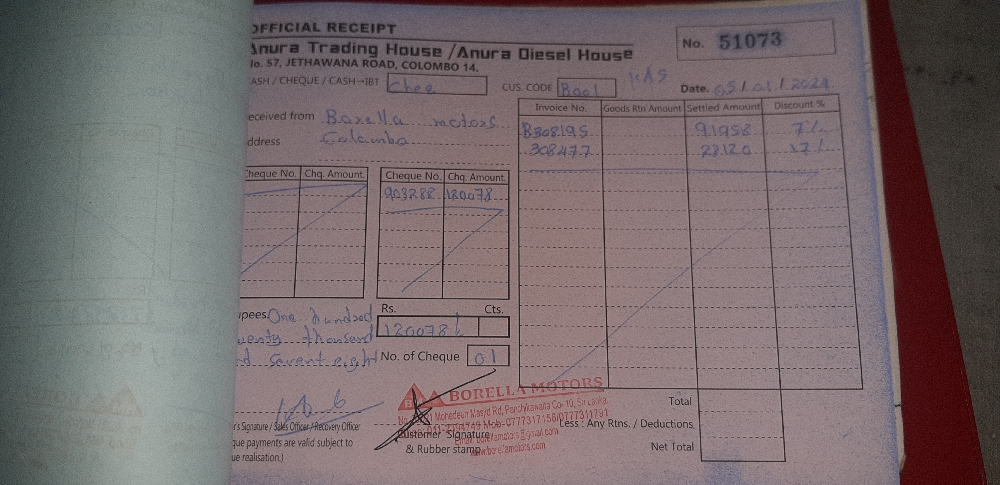 OFFICIAL RECEIPT
Anura Trading House /Anura Diesel House
No. 51073
No. 57, JETHAWANA ROAD, COLOMBO 14.
ASH / CHEQUE / CASH→IBT Cheq CUS. CODE B001 KAS Date. 05/01/2024
eceived from Borella motors
ddress Colombo
Invoice No. Goods Rtn Amount Settled Amount Discount %
B308195 91958 7%
308477 28120 17%
Cheque No. Chq. Amount. Cheque No. Chq. Amount.
903288 120078
upees One hundred
wenty thousand
d sevent eight
Rs. Cts.
120078/
No. of Cheque 01
BORELLA MOTORS
Mohedeen Masjid Rd, Panchikawatta Co- 10, Sri Lanka.
Mob-0777317156/0777311791
Email: borellamotors@gmail.com
www.borellamotors.com
r's Signature / Sales Officer / Recovery Officer
que payments are valid subject to
ue realisation.)
Customer Signature
& Rubber stamp
Total
Less : Any Rtns. / Deductions
Net Total